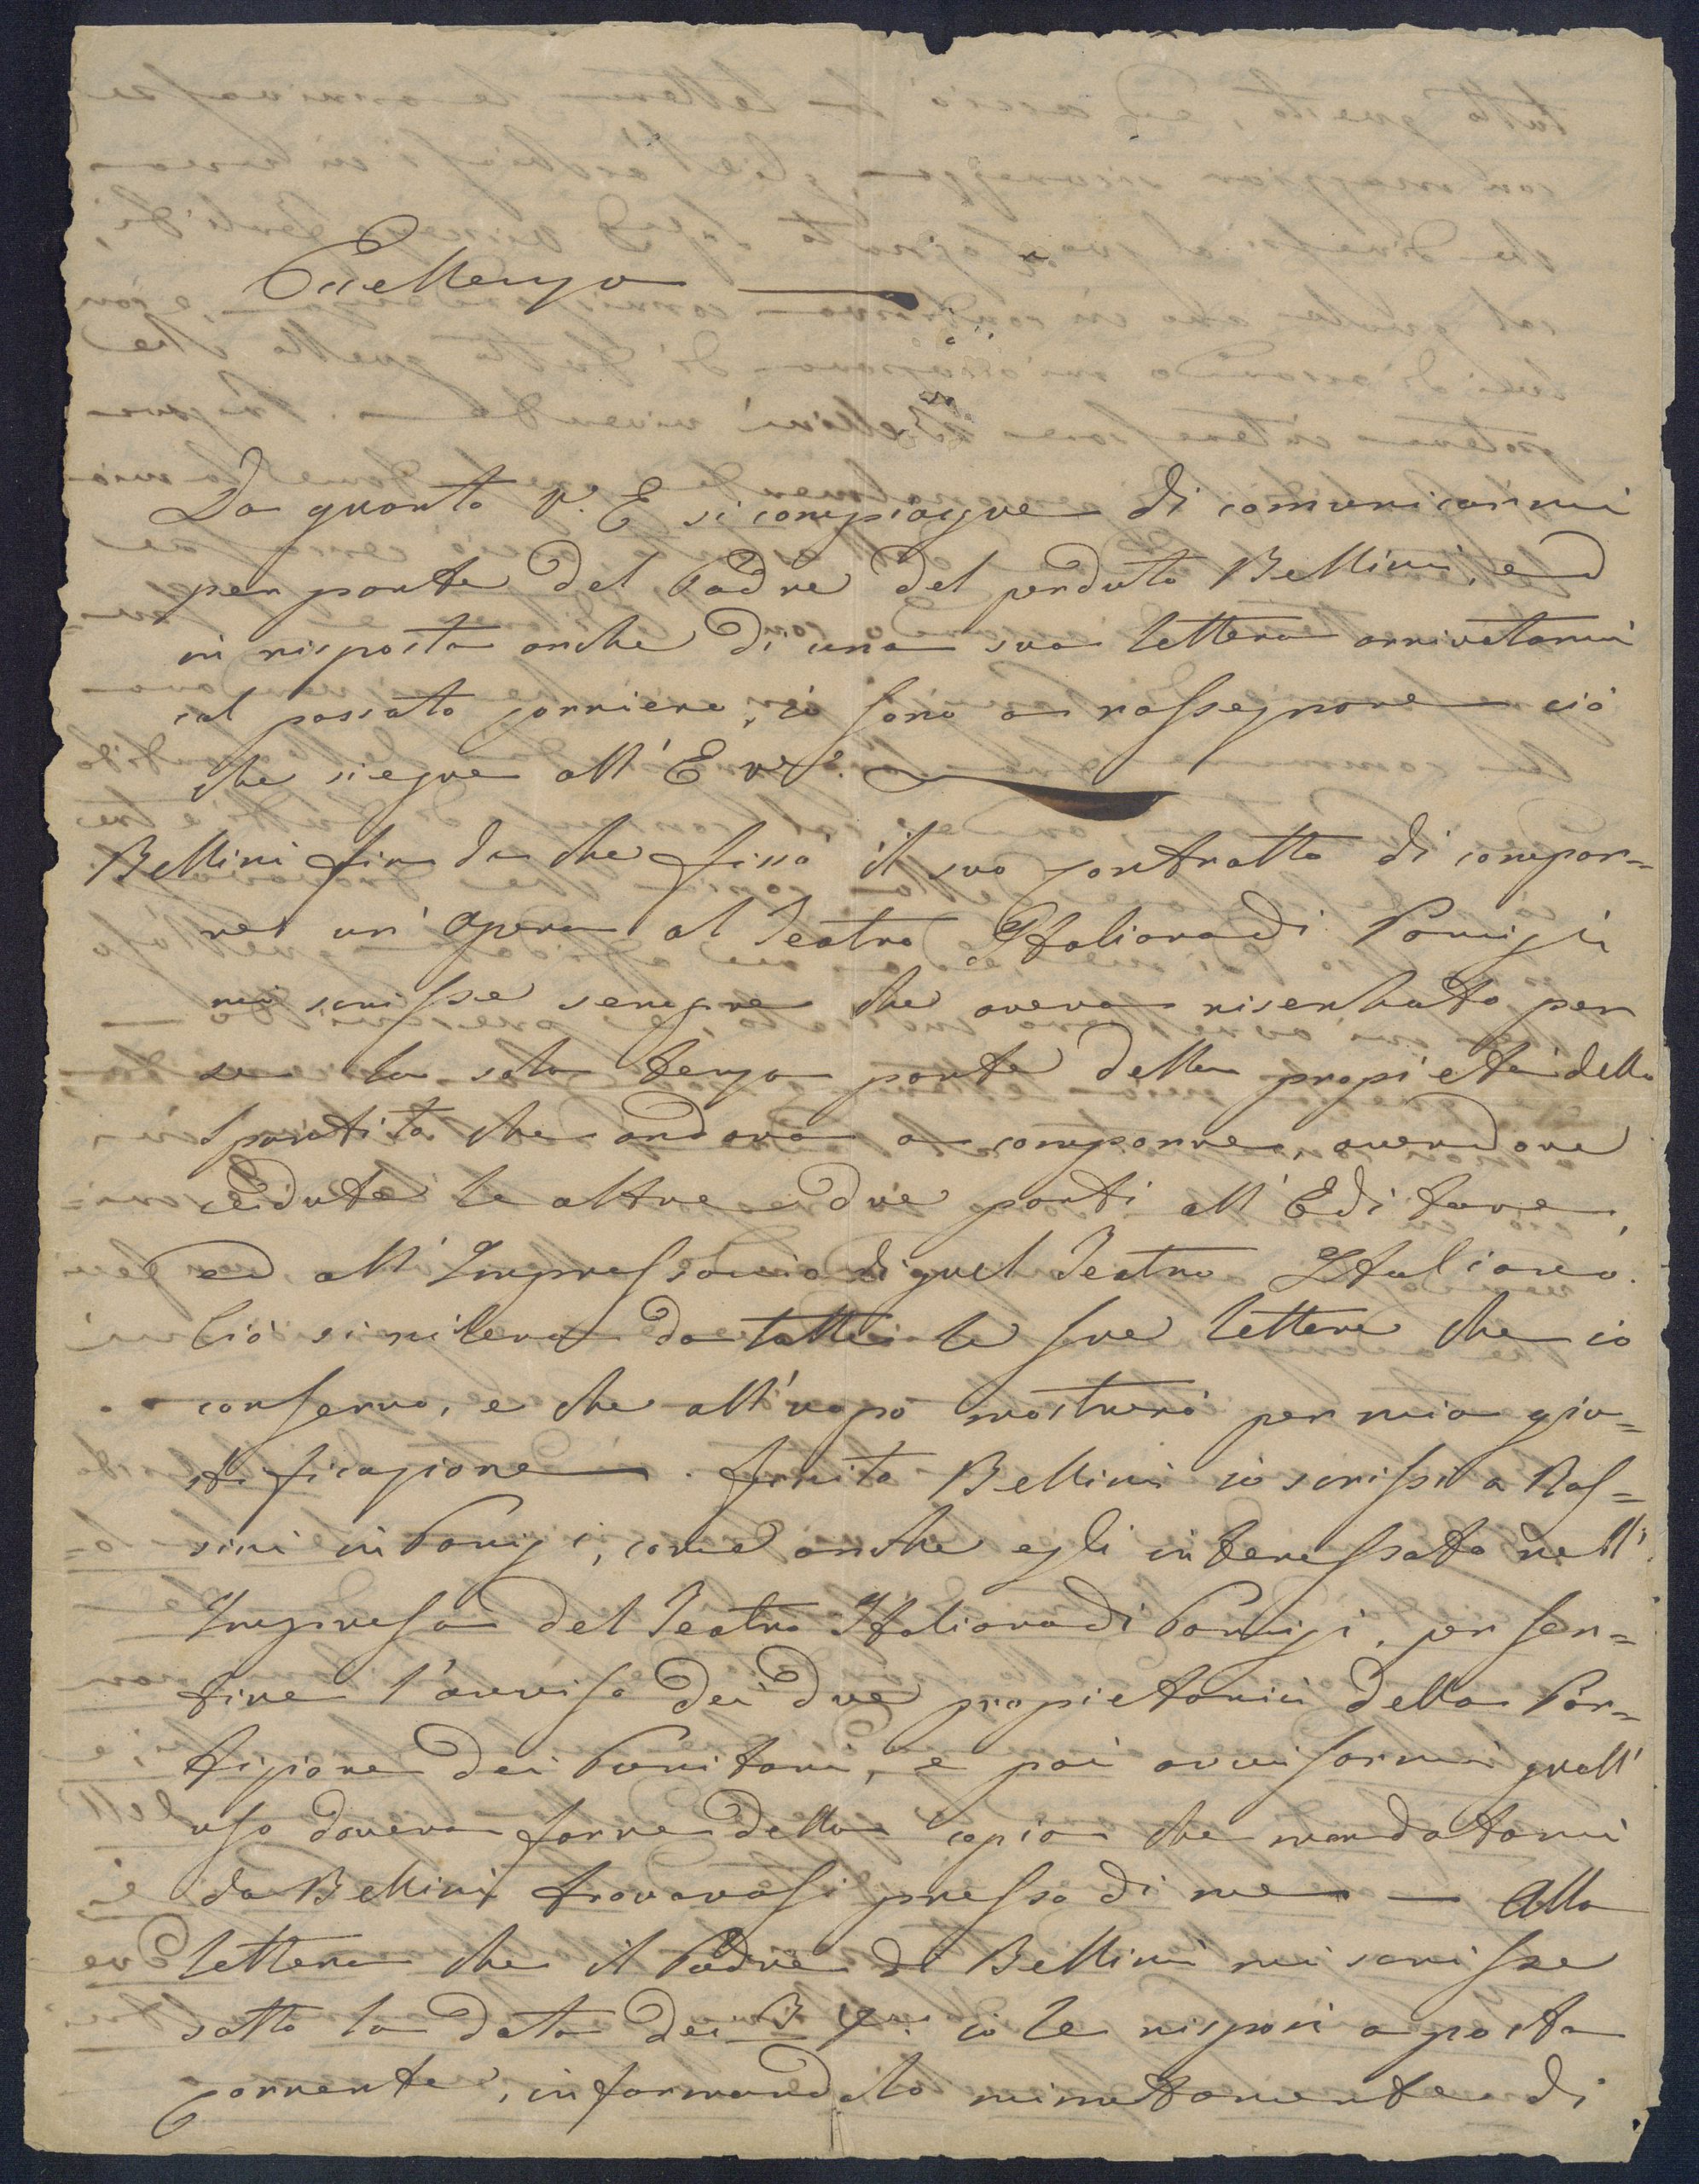 Eccellenza
Da quanto V. E si compiacque di comunicarmi
per parte del Padre del perduto Bellini, ed
in risposta anche di una sua lettera arrivatami
col passato corriere, io sono a rassegnare ciò
che siegue all' E
Bellini fin da che fissò il suo contratto di compor=
re un' Opera al Teatro Italiano di Parigi
mi scrisse sempre che aveva riserbato per
se la sola terza parte della propietà dello
Spartito che andava a comporre, avendone
cedute le altre due parti all' Editore,
ed all' Impressario di quel Teatro Italiano.
Ciò si rileva da tutte le sue lettere che io
conservo, e che all' uopo mostrerò per mia giu=
stificazione. Bellini io scrissi a Ros=
sini in Parigi, come anche egli interessato nell'
Impresa del Teatro Italiano di Parigi, per sen=
tire l'avviso dei due propietarii della Par=
tizione dei Puritani, e poi avvisarmi quall'
uso doveva farne della copia che mandatami
da Bellini trovavasi presso di me — Alla
lettera che il Padre di Bellini mi scrisse
sotto la data dei io le risposi a posta
corrente, informandolo minutamente di